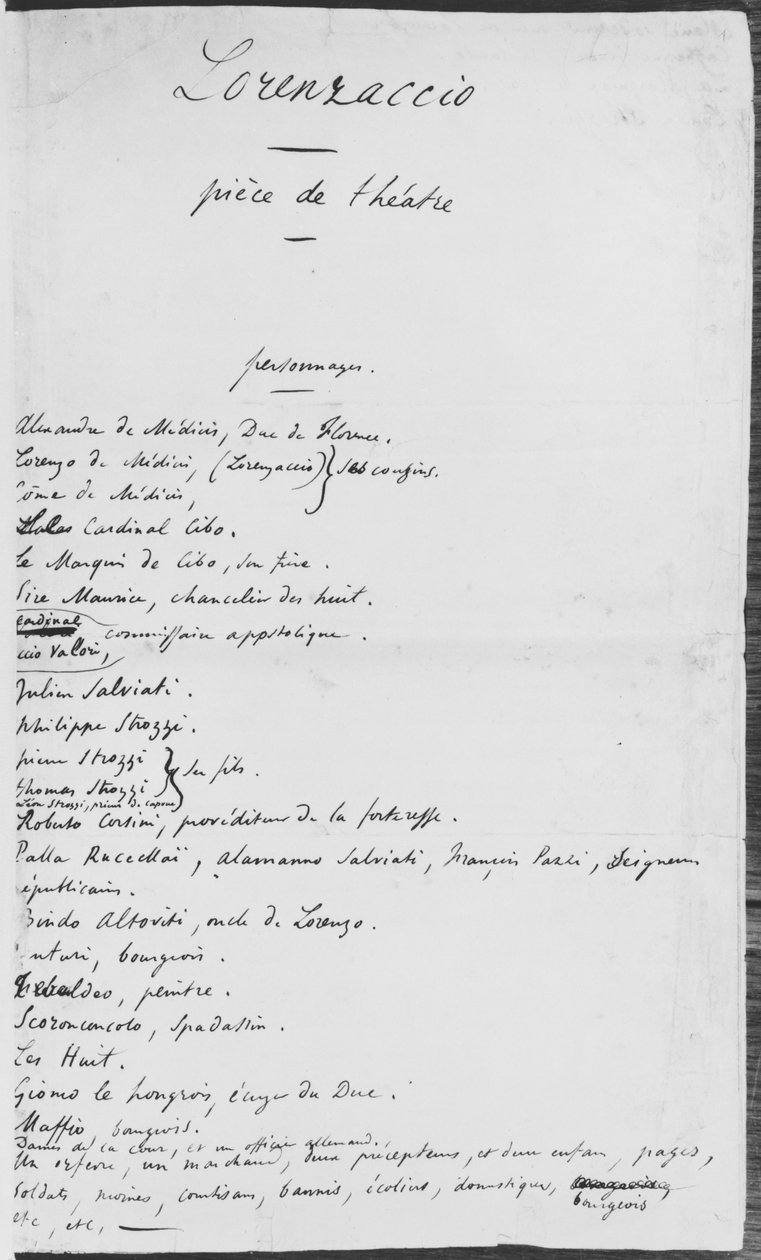 Lorenzaccio
pièce de théatre
personnages.
Alexandre de Médicis, Duc de Florence.
Lorenzo de Médicis, (Lorenzaccio) } ses cousins.
Côme de Médicis,
Cardinal Cibo.
Le Marquis de Cibo, son frère.
Sire Maurice, chancelier des huit.
cardinal
ccio Valori, commissaire appstolique.
Julien Salviati.
philippe Strozzi.
pierre Strozzi } ses fils.
thomas Strozzi
Léon Strozzi, prieur de Capoue
Roberto Corsini, provéditeur de la forteresse.
Palla Ruccellaï, alamanno Salviati, françois Pazzi, Seigneurs
épublicains.
Bindo Altoviti, oncle de Lorenzo.
nturi, bourgeois.
Tebaldeo, peintre.
Scoronconcolo, Spadassin.
Les Huit.
Giomo le hongrois, écuyer du Duc.
Maffio, bourgeois.
Dames de la cour, et un officier allemand.
Un orfèvre, un marchand, deux précepteurs, et deux enfans, pages,
Soldats, moines, courtisans, bannis, écoliers, domestiques,
bourgeois
etc, etc,